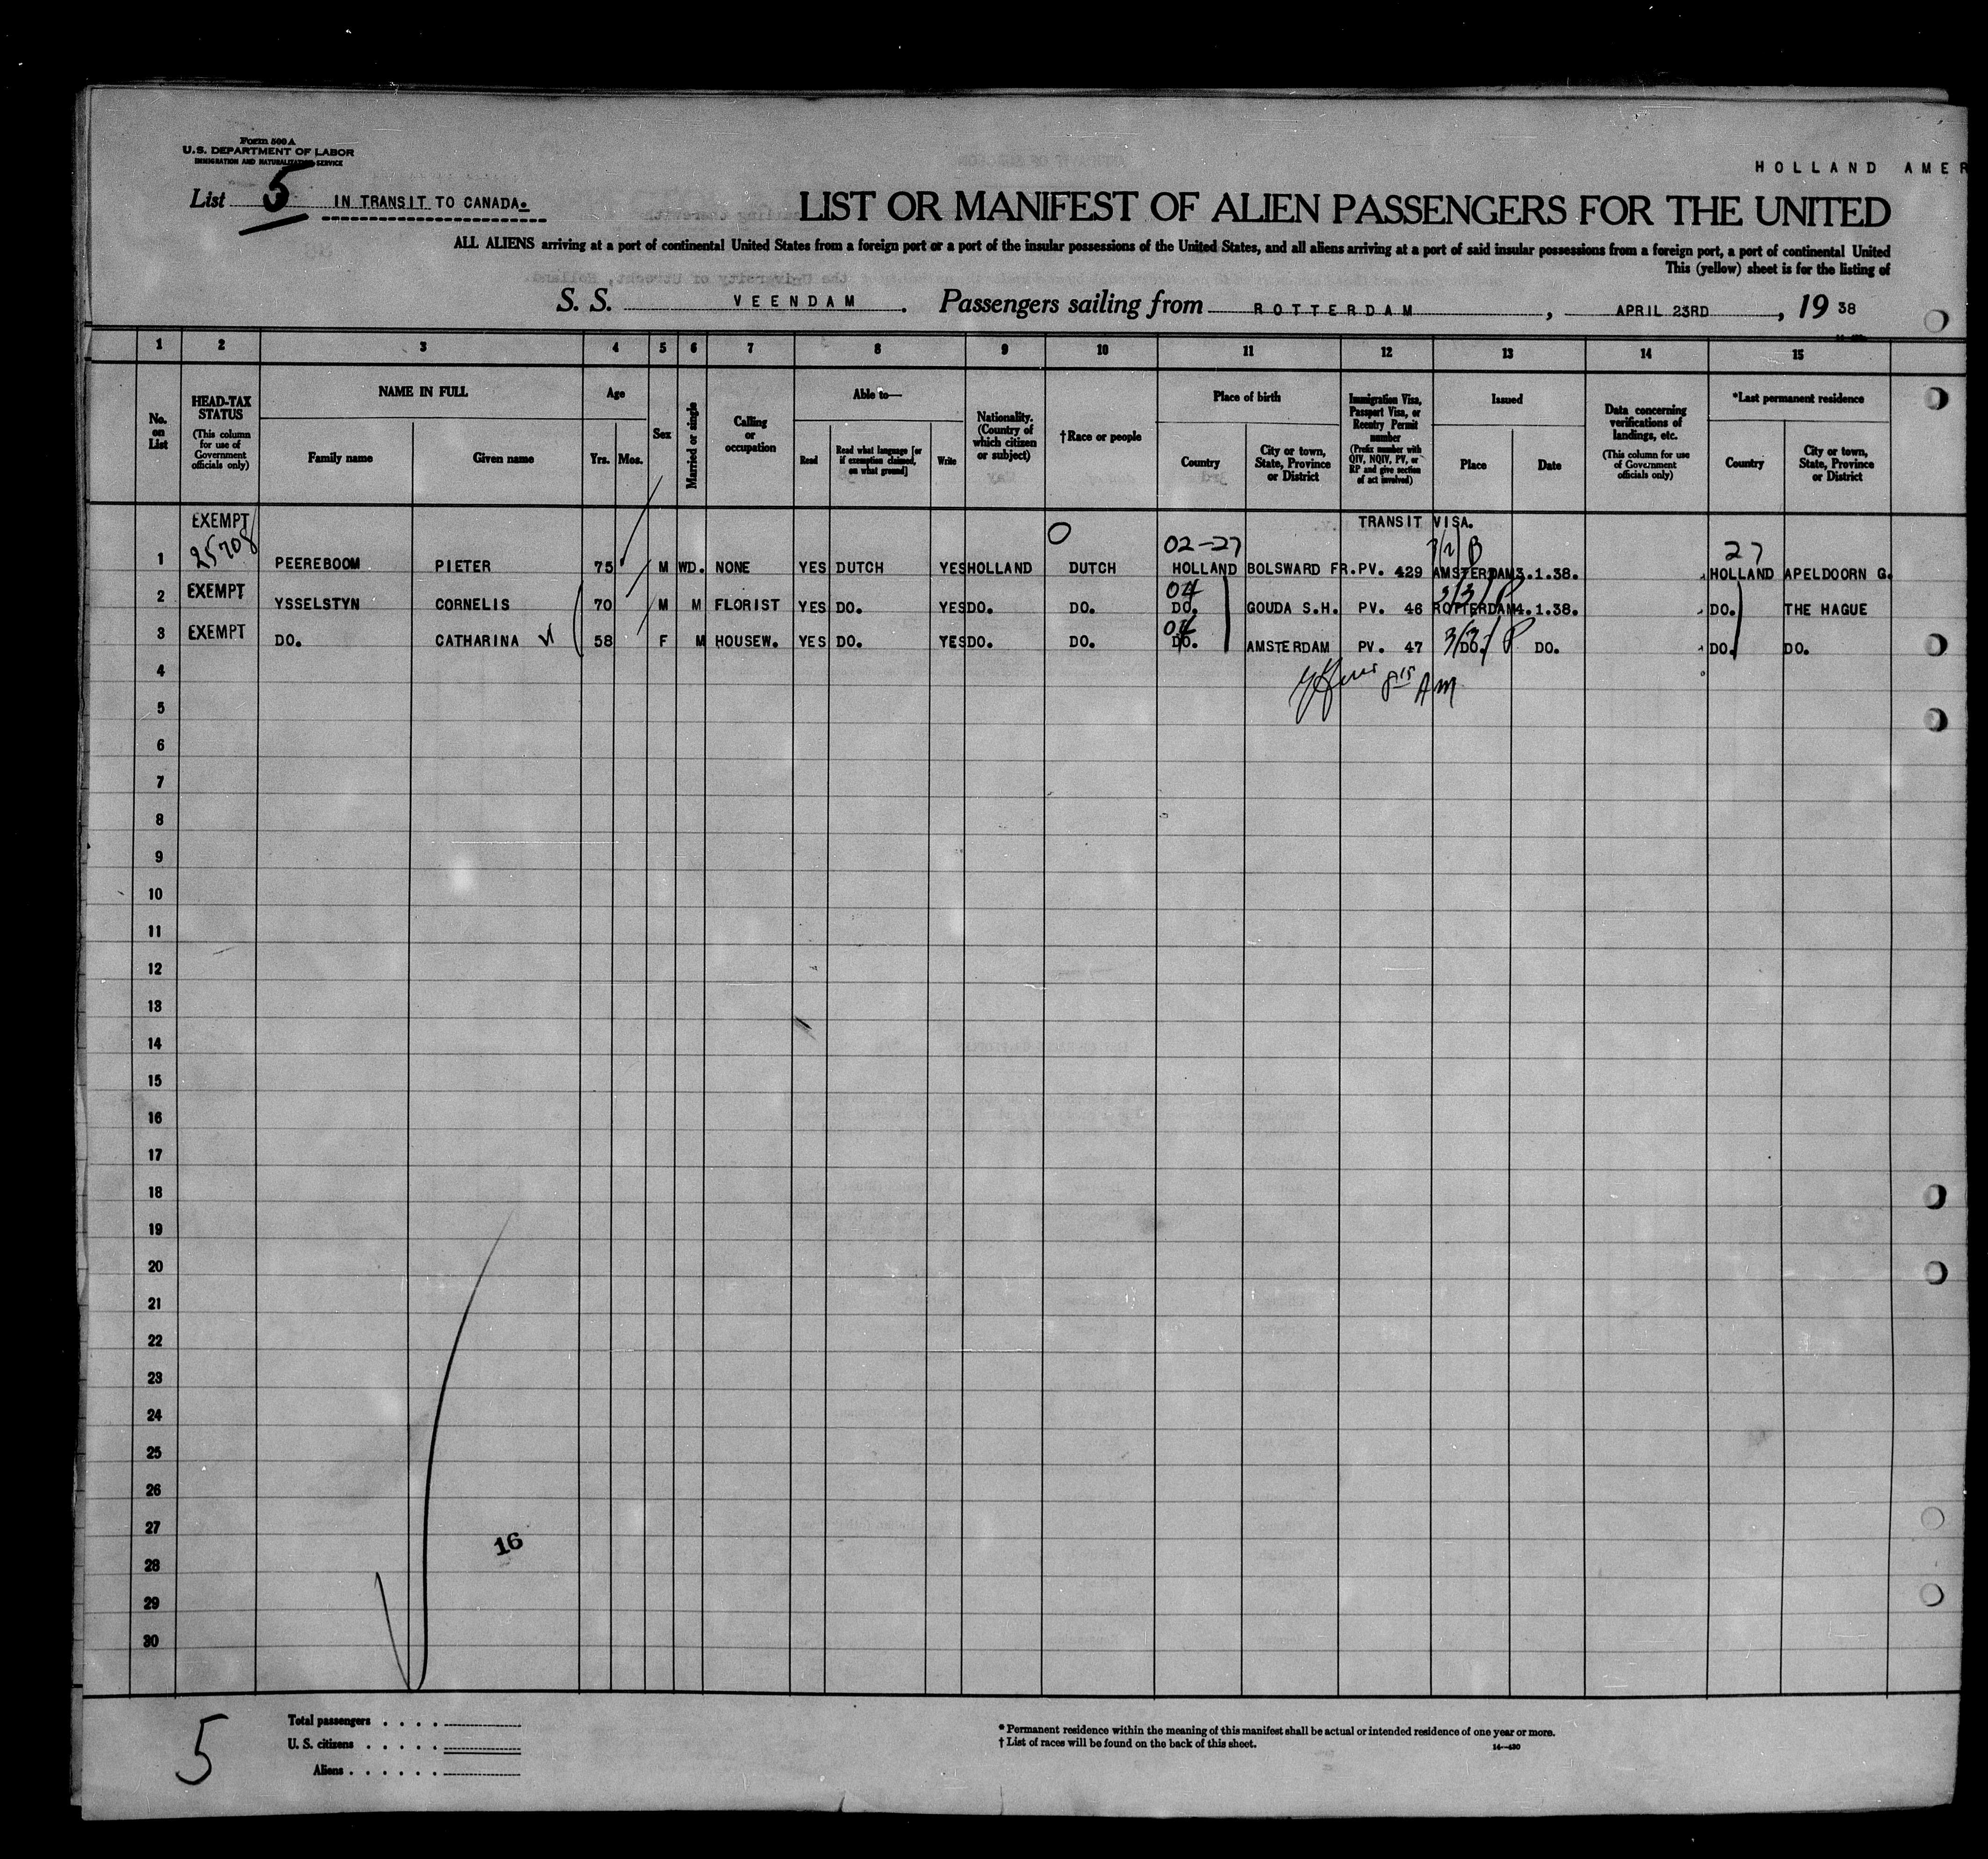 Form 500 A
U. S. DEPARTMENT OF LABOR
IMMIGRATION AND NATURALIZATION SERVICE
HOLLAND AMER
List 5 IN TRANSIT TO CANADA.
LIST OR MANIFEST OF ALIEN PASSENGERS FOR THE UNITED
ALL ALIENS arriving at a port of continental United States from a foreign port or a port of the insular possessions of the United States, and all aliens arriving at a port of said insular possessions from a foreign port, a port of continental United
This (yellow) sheet is for the listing of
S. S. VEENDAM. Passengers sailing from ROTTERDAM, APRIL 23RD, 19 38
1 2 3 4 5 6 7 8 9 10 11 12 13 14 15
No. on List
HEAD-TAX STATUS (This column for use of Government officials only)
NAME IN FULL
Family name Given name
Age
Yrs. Mos.
Sex
Married or single
Calling or occupation
Able to—
Read Read what language [or if exemption claimed, on what ground] Write
Nationality. (Country of which citizen or subject)
†Race or people
Place of birth
Country City or town, State, Province or District
Immigration Visa, Passport Visa, or Reentry Permit number (Prefix number with QIV, NQIV, PV, or RP and give section of act involved)
Issued
Place Date
Data concerning verifications of landings, etc. (This column for use of Government officials only)
*Last permanent residence
Country City or town, State, Province or District
EXEMPT TRANSIT VISA.
25708 0 02-27 27
1 PEEREBOOM PIETER 75 M WD. NONE YES DUTCH YES HOLLAND DUTCH HOLLAND BOLSWARD FR. PV. 429 AMSTERDAM 3.1.38. HOLLAND APELDOORN G.
04
2 EXEMPT YSSELSTYN CORNELIS 70 M M FLORIST YES DO. YES DO. DO. DO. GOUDA S.H. PV. 46 ROTTERDAM 4.1.38. DO. THE HAGUE
04
3 EXEMPT DO. CATHARINA 58 F M HOUSEW. YES DO. YES DO. DO. DO. AMSTERDAM PV. 47 DO. DO. DO. DO.
8 15 AM
4
5
6
7
8
9
10
11
12
13
14
15
16
17
18
19
20
21
22
23
24
25
26
27
16
28
29
30
5
Total passengers . . . .
U. S. citizens . . . . .
Aliens . . . . . .
* Permanent residence within the meaning of this manifest shall be actual or intended residence of one year or more.
† List of races will be found on the back of this sheet.
14—430